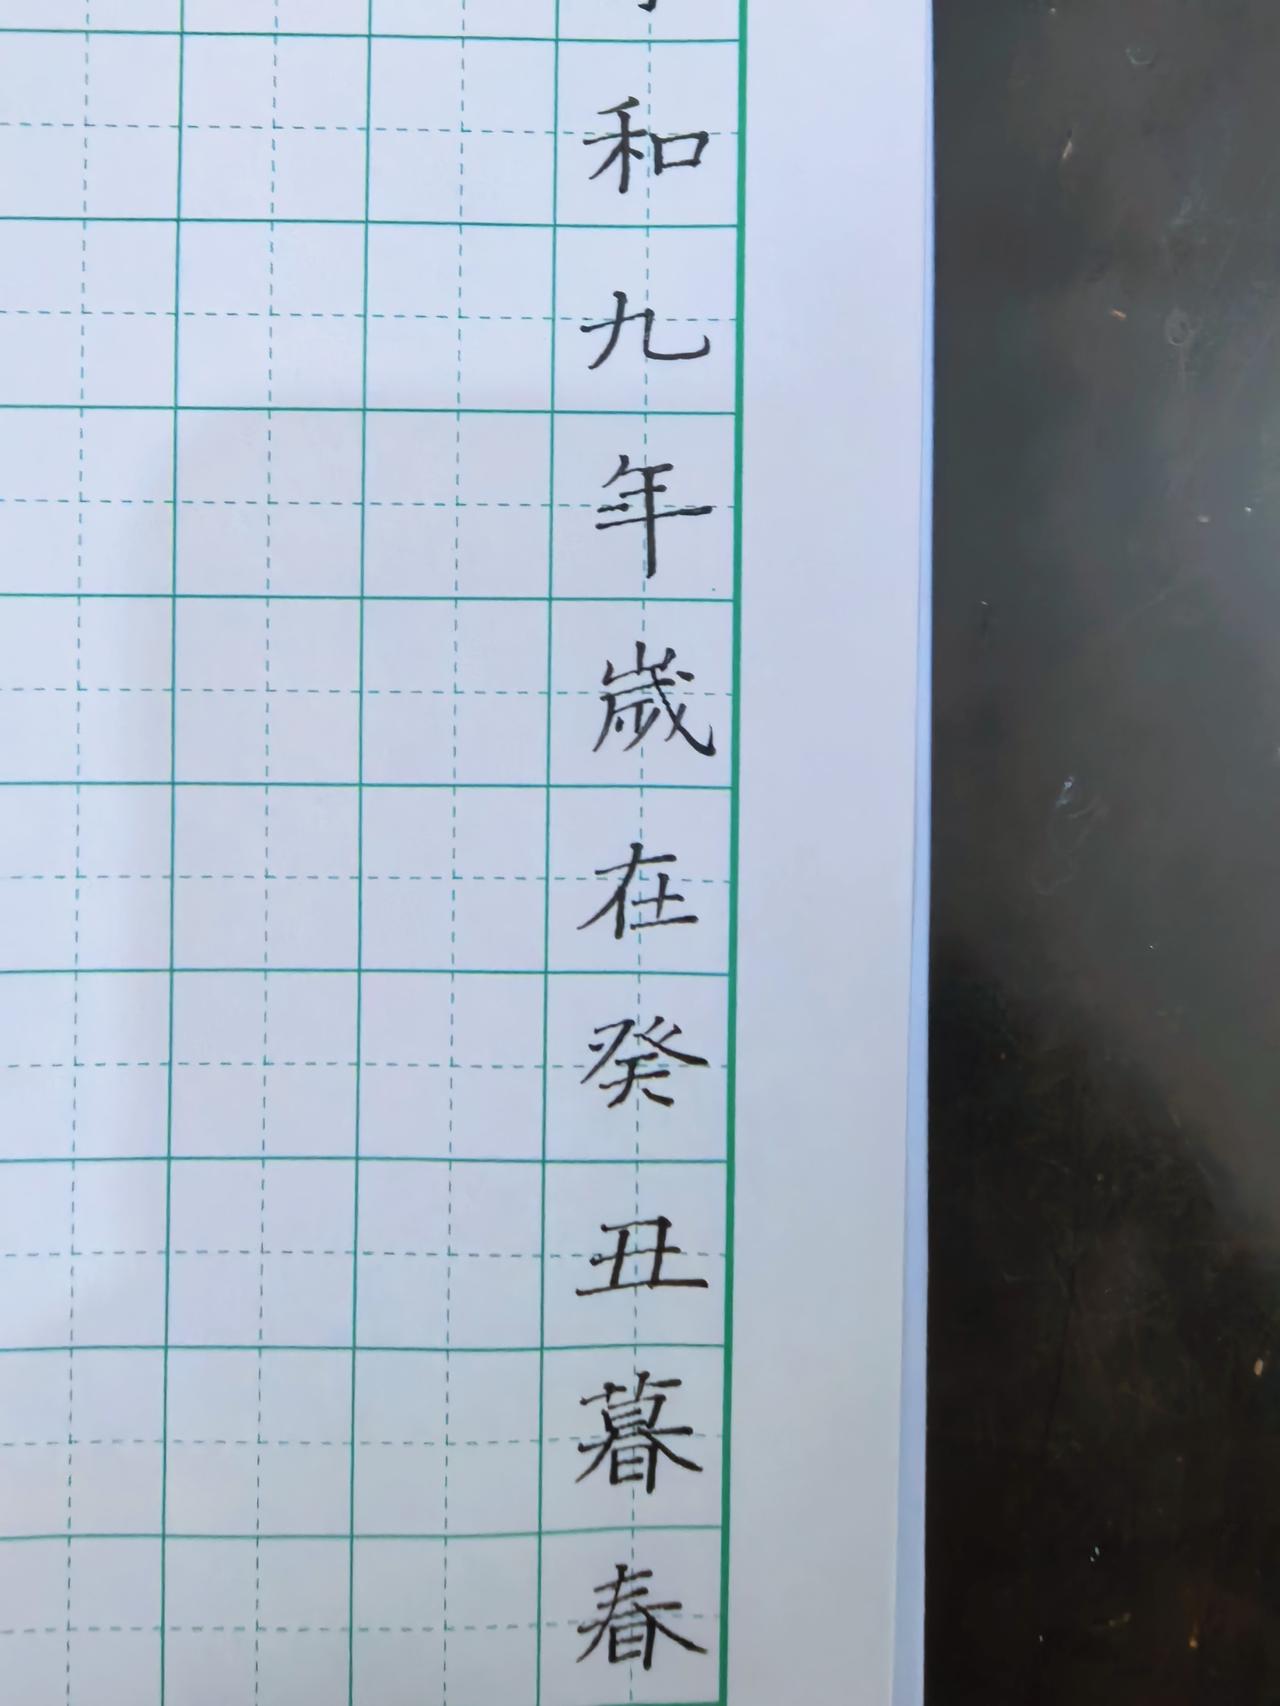 和九年歲在癸丑暮春